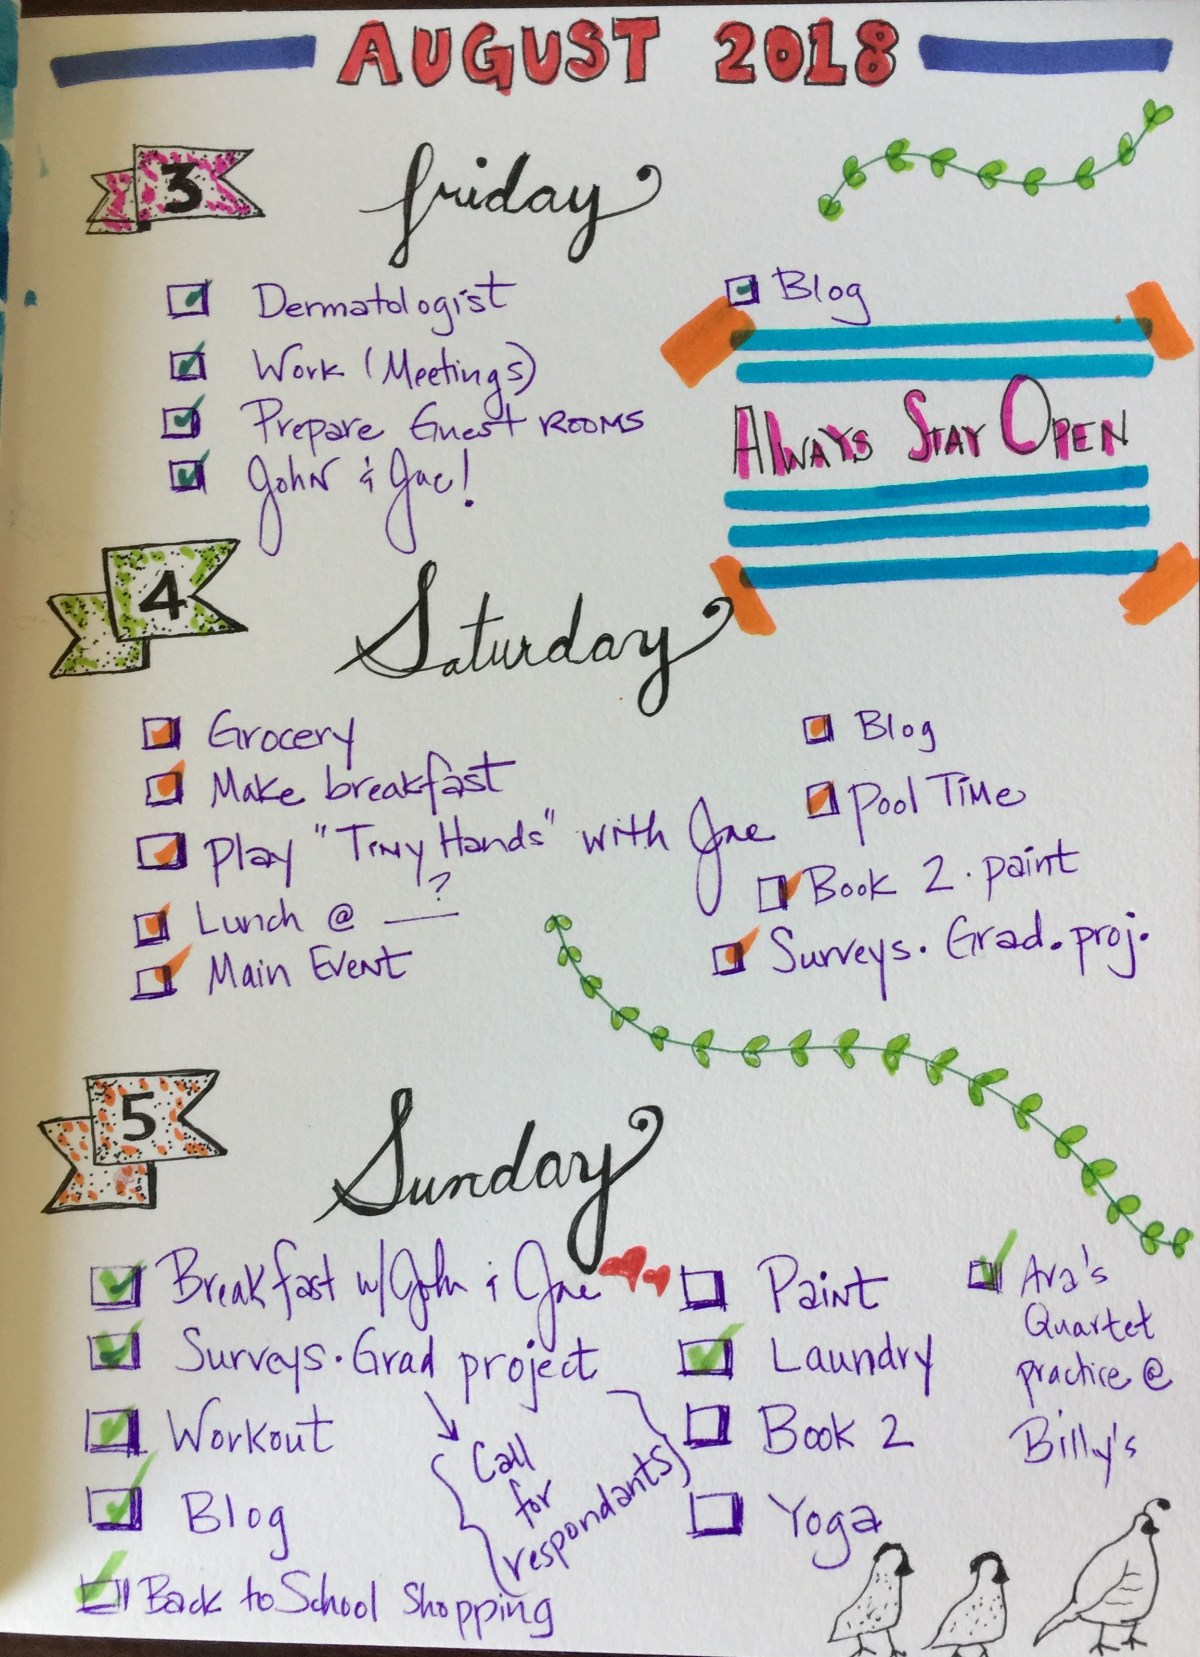 AUGUST 2018
3 friday
Dermatologist
Work (Meetings)
Prepare Guest ROOMS
John & Jae!
Blog
ALWAYS STAY OPEN
4 Saturday
Grocery
Make breakfast
Play "Tiny Hands" with Jae
Lunch @ ___?
Main Event
Blog
Pool Time
Book 2. paint
Surveys. Grad. proj.
5 Sunday
Breakfast w/ John & Jae
Surveys. Grad project
Call
for
respondants
Workout
Blog
Back to School Shopping
Paint
Laundry
Book 2
Yoga
Ava's
Quartet
practice @
Billy's